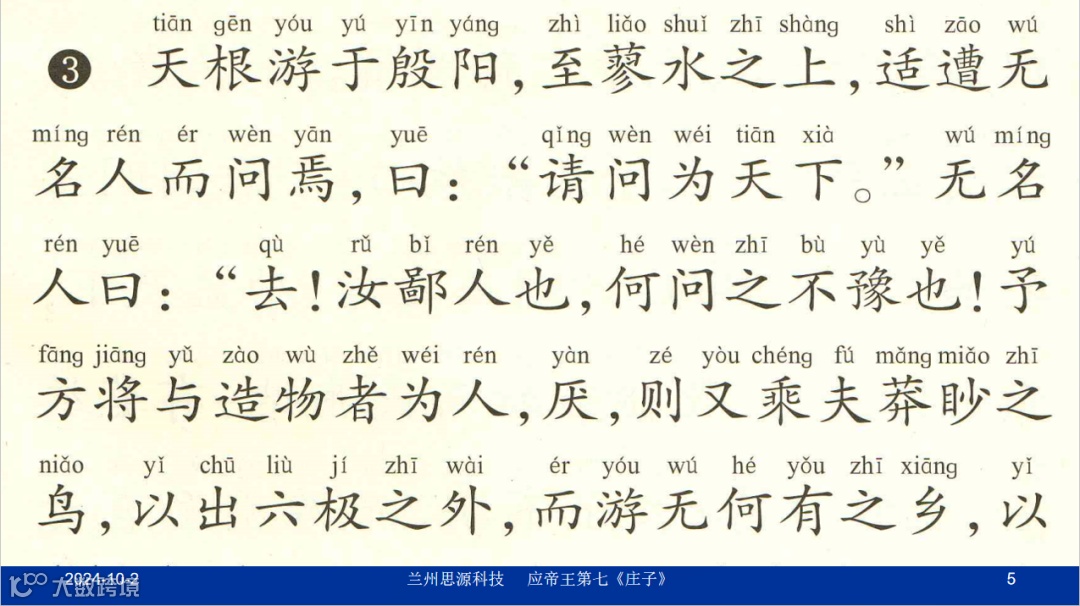 tiān gēn yóu yú yīn yáng zhì liǎo shuǐ zhī shàng shì zāo wú
❸ 天根游于殷阳,至蓼水之上,适遭无
míng rén ér wèn yān yuē qǐng wèn wéi tiān xià wú míng
名人而问焉,曰:“请问为天下。”无名
rén yuē qù rǔ bǐ rén yě hé wèn zhī bù yù yě yú
人曰:“去!汝鄙人也,何问之不豫也!予
fāng jiāng yǔ zào wù zhě wéi rén yàn zé yòu chéng fú mǎng miǎo zhī
方将与造物者为人,厌,则又乘夫莽眇之
niǎo yǐ chū liù jí zhī wài ér yóu wú hé yǒu zhī xiāng yǐ
鸟,以出六极之外,而游无何有之乡,以
2024-10-2 兰州思源科技 应帝王第七《庄子》 5
大数跨境